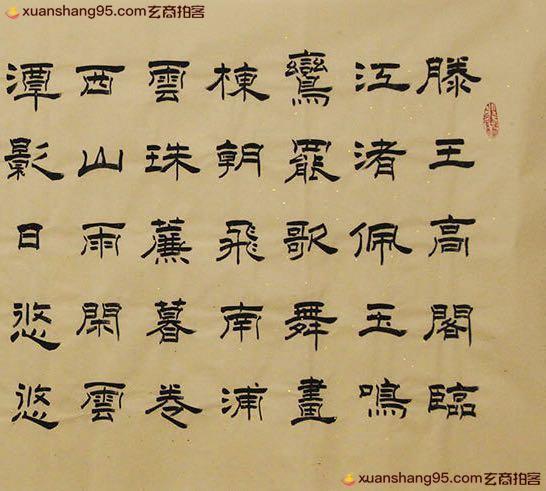 xuanshang95.com玄商拍客
滕王高閣臨
江渚佩玉鳴
鸞罷歌舞畫
棟朝飛南浦
雲珠簾暮卷
西山雨閑雲
潭影日悠悠
xuanshang95.com玄商拍客